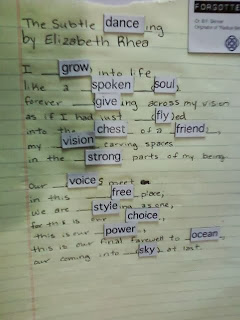 FORGOTTEN
The Subtle danceing
by Elizabeth Rhea
I grow into life
like a spoken (soul,
forever giveing across my vision
as if I had just (fly)ed
into the chest of a friend,
my vision carving spaces
in the strong parts of my being.
Our voices meet
in this free place,
we are styleing as one,
for this is our choice,
this is our power,
this is our final farewell to ocean,
our coming into (sky) at last.